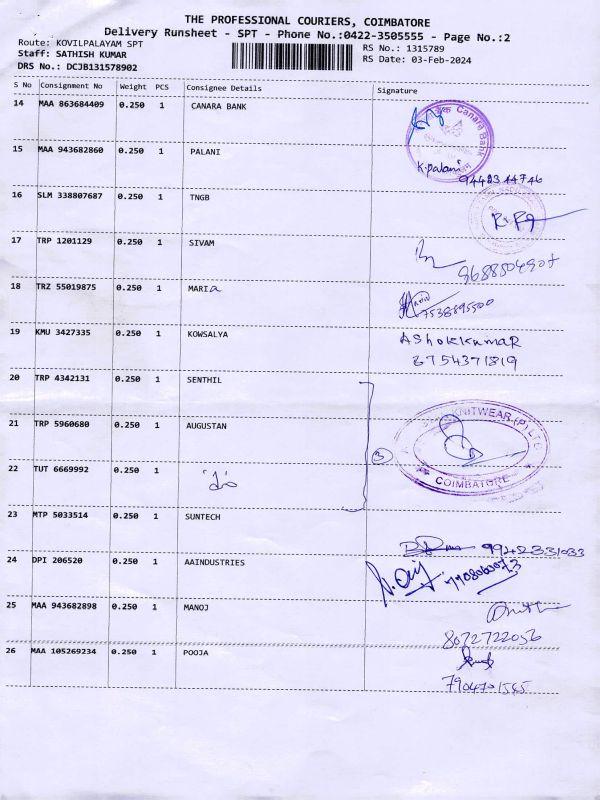 THE PROFESSIONAL COURIERS, COIMBATORE
Delivery Runsheet - SPT - Phone No.:0422-3505555 - Page No.:2
Route: KOVILPALAYAM SPT
Staff: SATHISH KUMAR
DRS No.: DCJB131578902
RS No.: 1315789
RS Date: 03-Feb-2024
S No Consignment No Weight PCS Consignee Details Signature
14 MAA 863684409 0.250 1 CANARA BANK
Canara Bank
15 MAA 943682860 0.250 1 PALANI K.Palani
16 SLM 338807687 0.250 1 TNGB
17 TRP 1201129 0.250 1 SIVAM
18 TRZ 55019875 0.250 1 MARIA
7538895500
19 KMU 3427335 0.250 1 KOWSALYA ASHOKKUMAR
8754371819
20 TRP 4342131 0.250 1 SENTHIL
21 TRP 5960680 0.250 1 AUGUSTAN
KNITWEAR (P) LTD
3
COIMBATORE
22 TUT 6669992 0.250 1
23 MTP 5033514 0.250 1 SUNTECH
24 DPI 206520 0.250 1 AAINDUSTRIES
25 MAA 943682898 0.250 1 MANOJ
8072722056
26 MAA 105269234 0.250 1 POOJA
7904701545